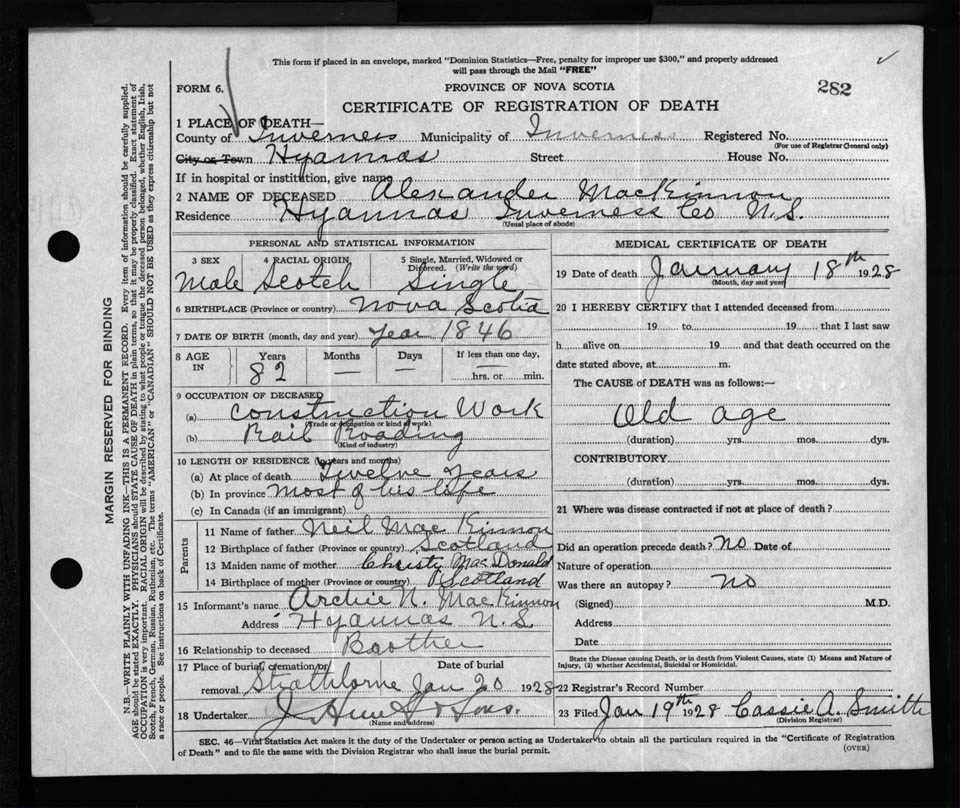 This form if placed in an envelope, marked "Dominion Statistics—Free, penalty for improper use $300," and properly addressed
will pass through the Mail "FREE"
FORM 6.
PROVINCE OF NOVA SCOTIA
282
CERTIFICATE OF REGISTRATION OF DEATH
1 PLACE OF DEATH—
County of Inverness Municipality of Inverness Registered No.
(For use of Registrar General only)
City or Town Hyannas Street House No.
If in hospital or institution, give name
2 NAME OF DECEASED Alexander MacKinnon
Residence Hyannas Inverness Co N.S.
(Usual place of abode)
PERSONAL AND STATISTICAL INFORMATION
3 SEX 4 RACIAL ORIGIN 5 Single, Married, Widowed or
Divorced. (Write the word)
Male Scotch Single
6 BIRTHPLACE (Province or country) Nova Scotia
7 DATE OF BIRTH (month, day and year) Year 1846
8 AGE IN Years Months Days If less than one day,
82 — — hrs. or min.
9 OCCUPATION OF DECEASED
(a) Construction Work
(Trade or occupation or kind of work)
(b) Rail Roading
(Kind of industry)
10 LENGTH OF RESIDENCE (in years and months)
(a) At place of death Twelve Years
(b) In province Most of his life
(c) In Canada (if an immigrant)
Parents
11 Name of father Neil MacKinnon
12 Birthplace of father (Province or country) Scotland
13 Maiden name of mother Christy MacDonald
14 Birthplace of mother (Province or country) Scotland
15 Informant's name Archie N. MacKinnon
Address Hyannas N.S.
16 Relationship to deceased Boother
17 Place of burial, cremation or Date of burial
removal Strathlorne Jan 20 1928
18 Undertaker J & Sons.
(Name and address)
MEDICAL CERTIFICATE OF DEATH
19 Date of death January 18th 1928
(Month, day and year)
20 I HEREBY CERTIFY that I attended deceased from
19 to 19 that I last saw
h alive on 19 and that death occurred on the
date stated above, at m.
The CAUSE of DEATH was as follows:—
Old age
(duration) yrs. mos. dys.
CONTRIBUTORY.
(duration) yrs. mos. dys.
21 Where was disease contracted if not at place of death?
Did an operation precede death? No Date of
Nature of operation
Was there an autopsy? No
(Signed) M.D.
Address
Date
State the Disease causing Death, or in death from Violent Causes, state (1) Means and Nature of
Injury, (2) whether Accidental, Suicidal or Homicidal.
22 Registrar's Record Number
23 Filed Jan 19th 1928 Cassie A. Smith
(Division Registrar)
SEC. 46—Vital Statistics Act makes it the duty of the Undertaker or person acting as Undertaker to obtain all the particulars required in the "Certificate of Registration
of Death" and to file the same with the Division Registrar who shall issue the burial permit.
(OVER)
MARGIN RESERVED FOR BINDING
N.B.—WRITE PLAINLY WITH UNFADING INK—THIS IS A PERMANENT RECORD. Every item of information should be carefully supplied.
AGE should be stated EXACTLY. PHYSICIANS should STATE CAUSE OF DEATH in plain terms, so that it may be properly classified. Exact statement of
OCCUPATION is very important. RACIAL ORIGIN will be described by stating to what people or tongue the deceased person belonged, whether English, Irish,
Scotch, French, German, Russian, Ruthenian, etc. The terms "AMERICAN" or "CANADIAN" SHOULD NOT BE USED as they express citizenship but not
a race or people. See instructions on back of Certificate.